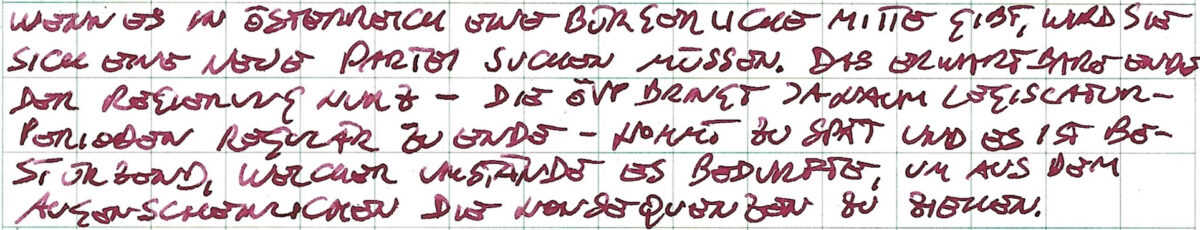 WENN ES IN ÖSTERREICH EINE BÜRGERLICHE MITTE GIBT, WIRD SIE
SICH EINE NEUE PARTEI SUCHEN MÜSSEN. DAS ERWARTBARE ENDE
DER REGIERUNG KURZ – DIE ÖVP BRINGT JA KAUM LEGISLATUR-
PERIODEN REGULÄR ZU ENDE – KOMMT ZU SPÄT UND ES IST BE-
STÜRZEND, WELCHER UMSTÄNDE ES BEDURFTE, UM AUS DEM
AUGENSCHEINLICHEN DIE KONSEQUENZEN ZU ZIEHEN.